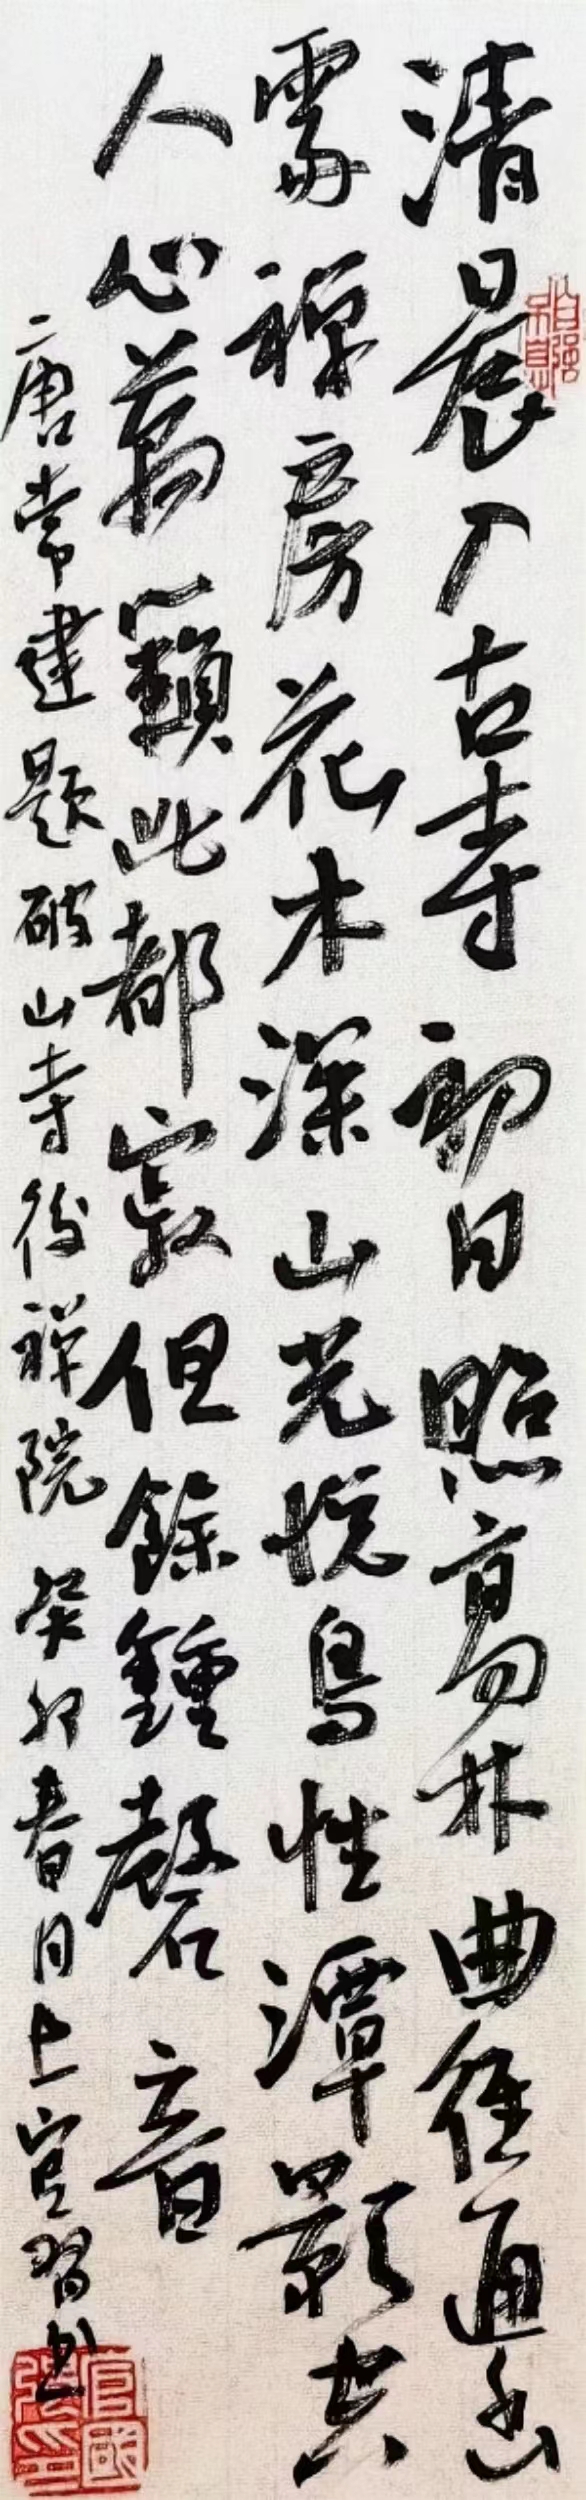 清晨入古寺初日照高林曲徑通幽
處禪房花木深山光悅鳥性潭影空
人心萬籟此都寂但餘鍾磬音
唐常建題破山寺後禪院 癸卯春月上官習書